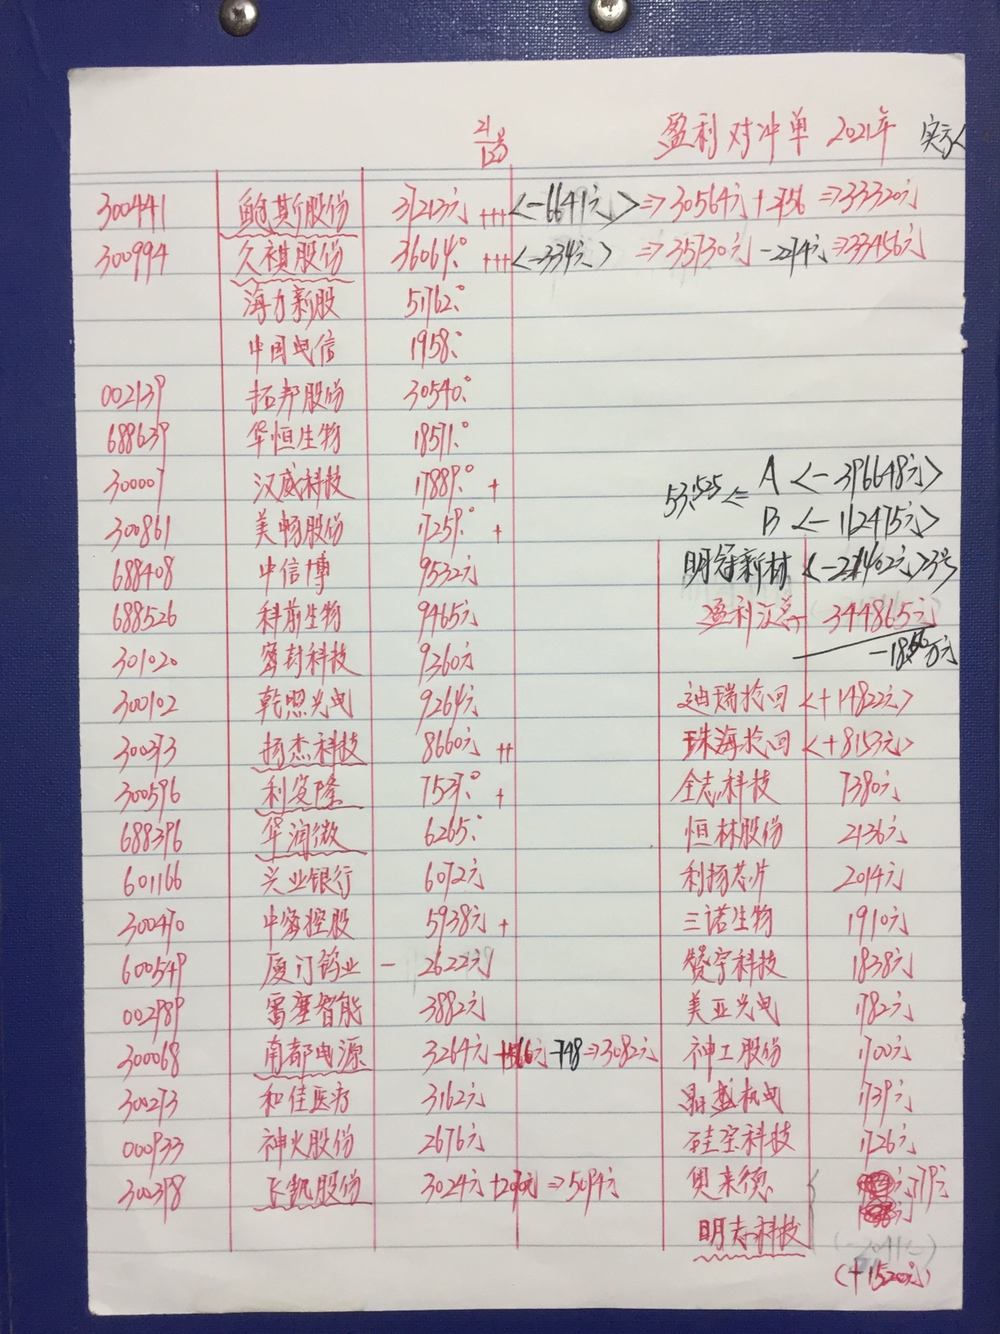 21号
盈利对冲单 2021年
300441 鲍斯股份 37213元 +++ <-6641元> => 30564元 +2756 => 33320元
300994 久祺股份 36064 +++ <-334元> => 35730元 -2274元 => 33456元
海力新股 51762
中国电信 1958
002139 拓邦股份 30540
688639 华恒生物 18571
300007 汉威科技 17889 +
A <-396648元>
300861 美畅股份 17259 +
B <-112475元>
688408 中信博 9532元 明冠新材
688526 科前生物 9465元 盈利汇总 344865元
301020 密封科技 9360元
300102 乾照光电 9264元 迪瑞抢回 <+14822元>
300373 扬杰科技 8660元 ++ 珠海抢回 <+8153元>
300596 利安隆 7537 + 全志科技 7380元
688396 华润微 6265 恒林股份 2136元
601166 兴业银行 6072元 利扬芯片 2014元
300470 中密控股 5938元 + 三诺生物 1910元
600549 厦门钨业 - 2622元 赞宇科技 1838元
002989 雷塞智能 3882元 美亚光电 1782元
300068 南都电源 3264元 -748 => 3082元 神工股份 1700元
300273 和佳医疗 3162元 晶盛机电 1739元
000933 神火股份 2676元 硅宝科技 1726元
300398 飞凯股份 3024元 +2070元 => 5094元 奥来德
明志科技
(+1520元)